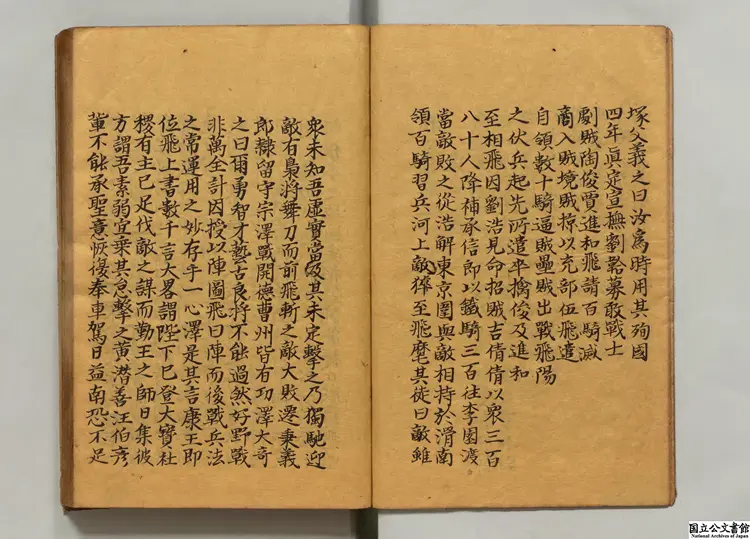 塚父義之曰汝爲時用其殉國
四年眞定宣撫劉韐募敢戰士
劇賊陶俊賈進和飛請百騎滅
商入賊境賊掠以充部伍飛遣
自領數十騎逼賊壘賊出戰飛陽
之伏兵起先所遣卒擒俊及進和
至相飛因劉浩見命招賊吉倩倩以衆三百
八十人降補承信郎以鐵騎三百往李固渡
當敵敗之從浩解東京圍與敵相持於滑南
領百騎習兵河上敵猝至飛麾其徒曰敵雖
衆未知吾虛實當及其未定擊之乃獨馳迎
敵有梟將舞刀而前飛斬之敵大敗遷秉義
郎隸留守宗澤戰開德曹州皆有功澤大奇
之曰爾勇智才藝古良將不能過然好野戰
非萬全計因授以陣圖飛曰陣而後戰兵法
之常運用之妙存乎一心澤是其言康王即
位飛上書數千言大畧謂陛下已登大寶社
稷有主已足伐敵之謀而勤王之師日集彼
方謂吾素弱宜乘其怠擊之黄潜善汪伯彦
輩不能承聖意恢復奉車駕日益南恐不足
国立公文書館
National Archives of Japan